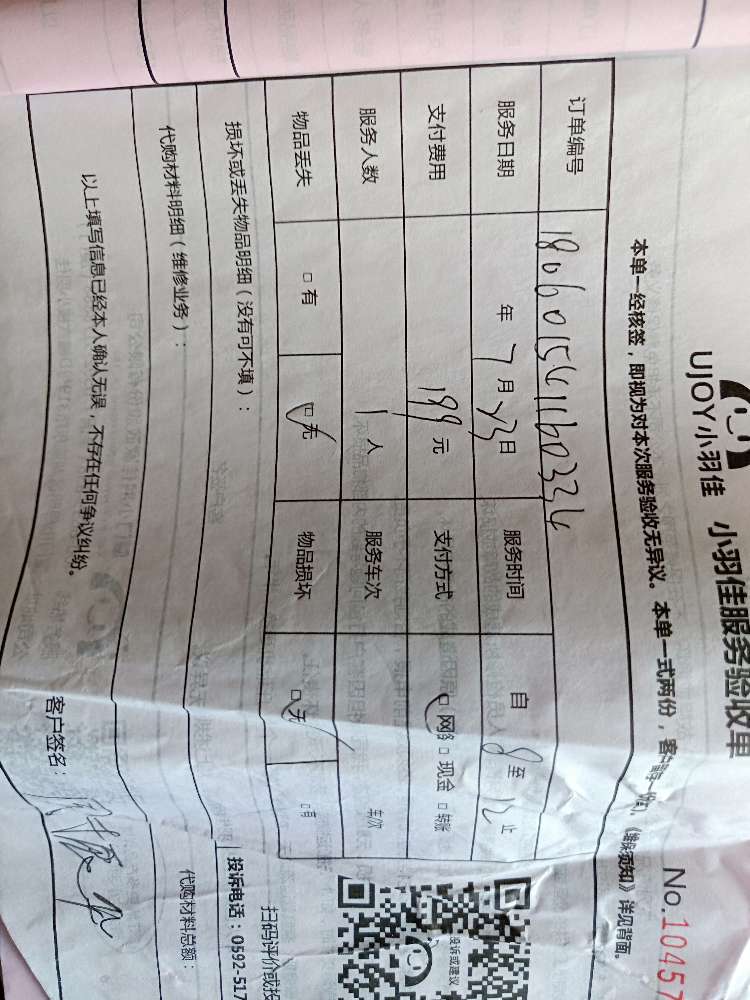 UJOY小羽佳 小羽佳服务验收单
No.10457
本单一经核签，即视为对本次服务验收无异议。本单一式两份，客户 《维保须知》详见背面。
订单编号 180601541160334
服务日期 年 7 月 23 日 服务时间 自 8 至 12 止
支付费用 199 元 支付方式 □网络 □现金 □转账
服务人数 1 人 服务车次 车次
物品丢失 □有 □无 物品损坏 □无 □有
损坏或丢失物品明细（没有可不填）：
代购材料明细（维修业务）： 代购材料总额：
以上填写信息已经本人确认无误，不存在任何争议纠纷。
客户签名：
投诉或建议
扫码评价或投
投诉电话：0592-517